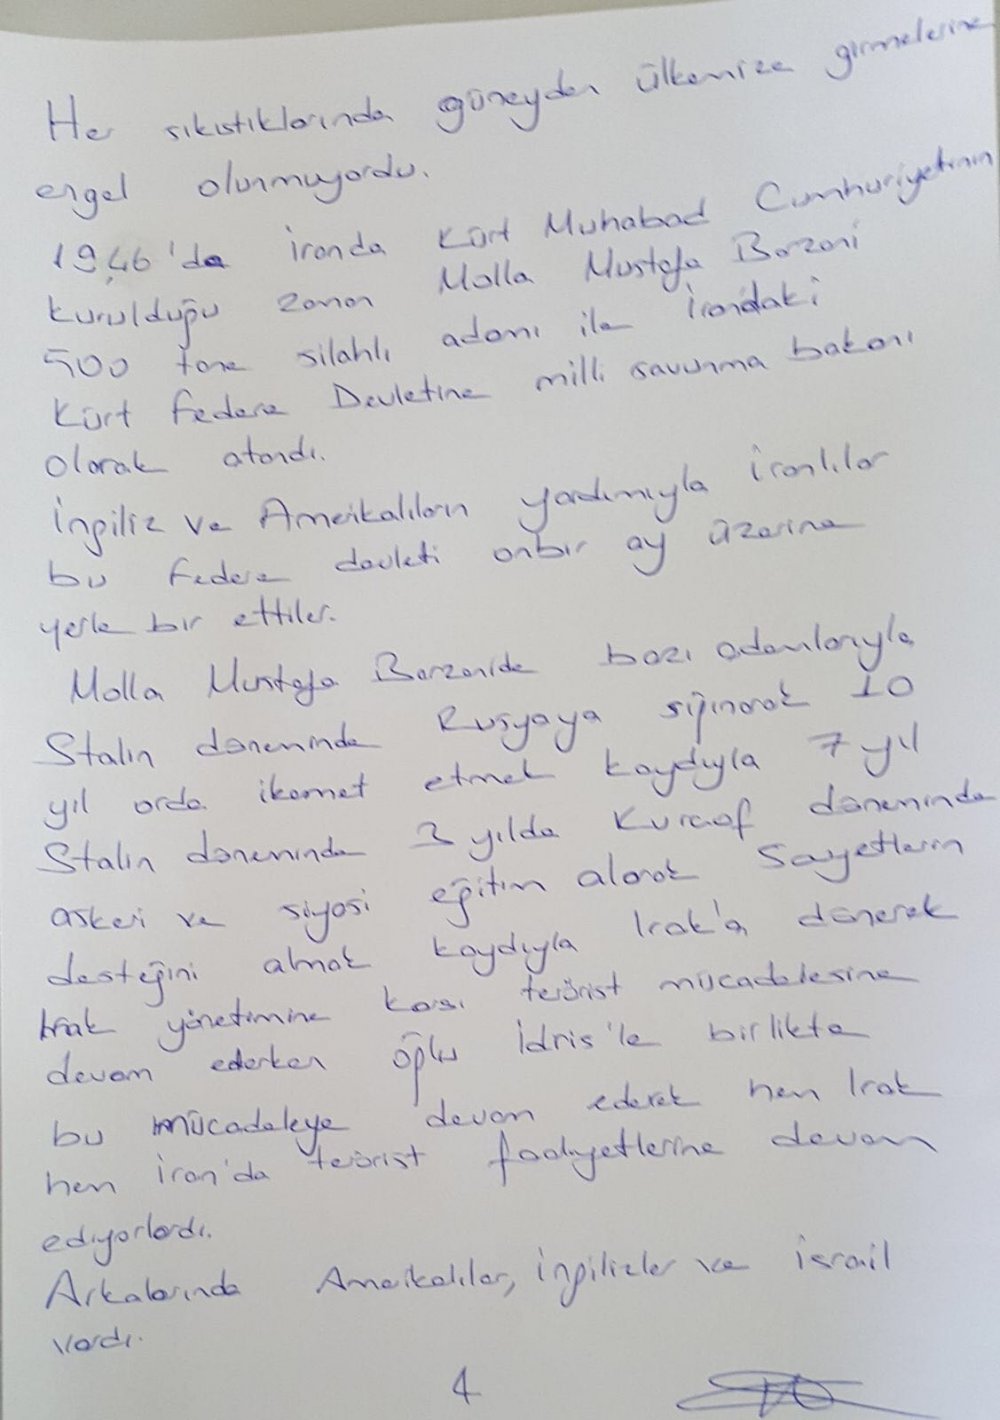 Her sıkıstıklarında güneyden ülkemize girmelerine
engel olunmuyordu.
1946'da İranda Kürt Muhabad Cumhuriyetinin
kurulduğu zaman Molla Mustafa Barzani
500 tane silahlı adamı ile İrandaki
Kürt Federe Devletine milli savunma bakanı
olarak atandı.
İngiliz ve Amerikalıların yardımıyla iranlılar
bu federe devleti onbir ay üzerine
yerle bir ettiler.
Molla Mustafa Barzanide bazı adamlarıyla
Stalin döneminde Rusyaya sığınarak 10
yıl orda ikamet etmek kaydıyla 7 yıl
Stalin döneminde 3 yılda döneminde
askeri ve siyasi eğitim alarak Sovyetlerin
desteğini almak kaydıyla Irak'a dönerek
Irak yönetimine karsı terörist mücadelesine
devam ederken oğlu İdris'le birlikte
bu mücadeleye devam ederek hem Irak
hem İran'da terörist faaliyetlerine devam
ediyorlardı.
Arkalarında Amerikalılar, İngilizler ve israil
vardı.
4